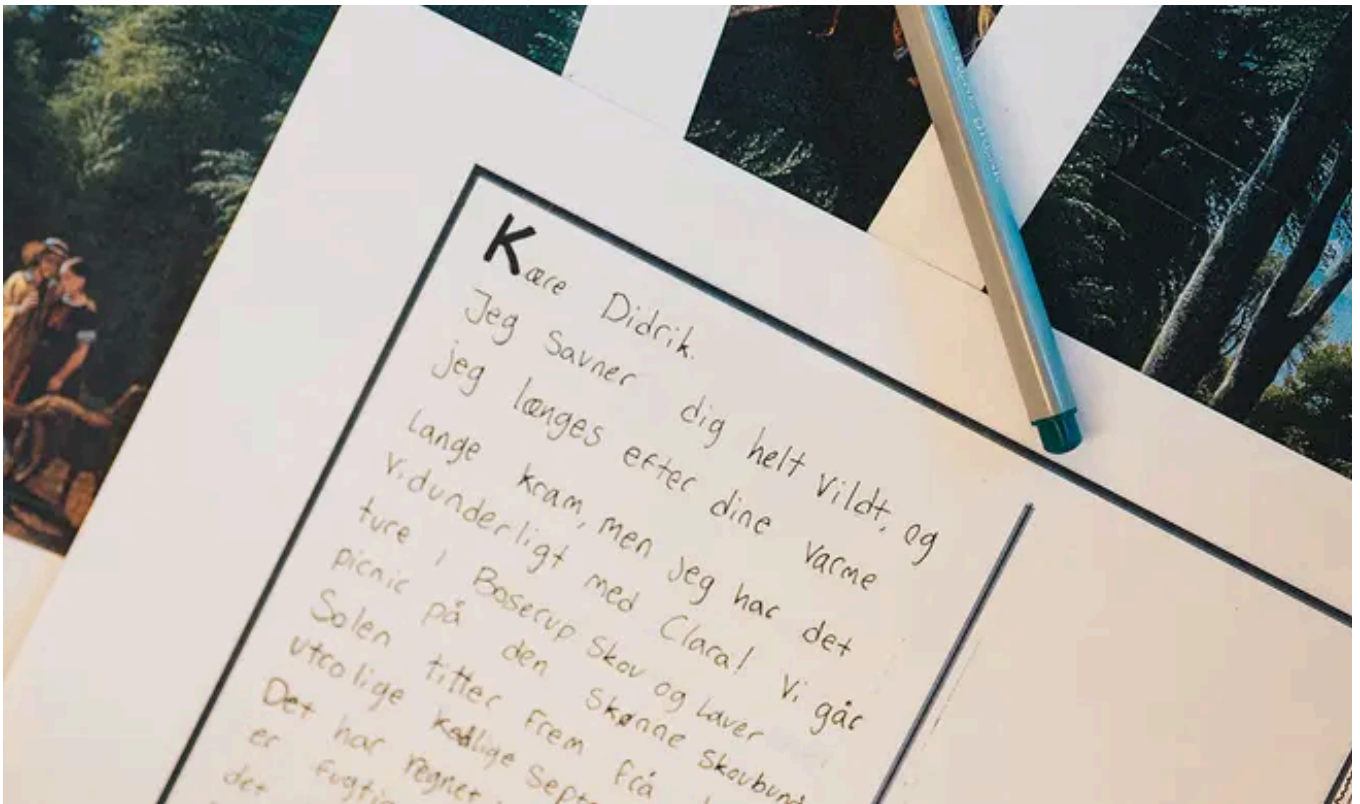 Kære Didrik.
Jeg savner dig helt vildt, og
jeg længes efter dine varme
lange kram, men jeg har det
vidunderligt med Clara! Vi går
ture i Boserup Skov og laver
picnic på den skønne skovbund
Solen titter frem fra
utrolige kedlige
Det har regnet
er
det